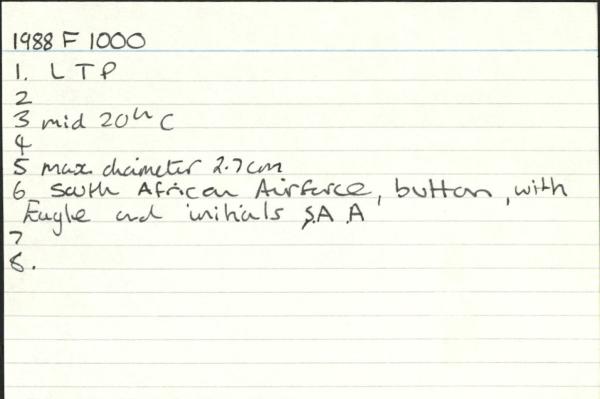 1988 F 1000
1. L T P
2
3 mid 20th C
4
5 max. diameter 2.7cm
6 South African Airforce, button, with
Eagle and initials S.A.A
7
8.